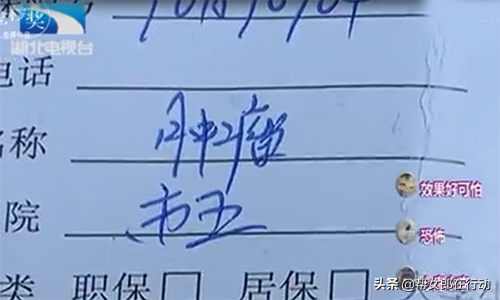 奖
湖北电视台
电话
名称 肿瘤
院 市五
效果好可怕
恐怖
类 职保□ 居保□
头条 @帮女郎在行动